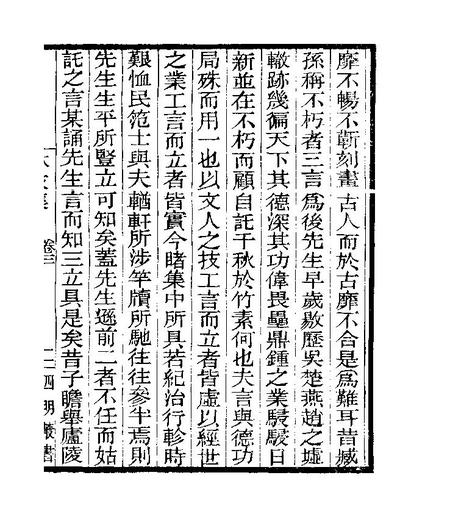 靡不暢不蘄刻畫古人而於古靡不合是爲難耳昔臧
孫稱不朽者三言爲後先生早歲敭歷吳楚燕趙之墟
轍跡幾徧天下其德深其功偉畏壘鼎鍾之業駸駸日
新並在不朽而顧自託千秋於竹素何也夫言與德功
局殊而用一也以文人之技工言而立者皆虛以經世
之業工言而立者皆實今睹集中所具若紀治行診時
艱恤民范士與夫輶軒所涉竿牘所馳往往參半焉則
先生生平所豎立可知矣蓋先生遜前二者不任而姑
託之言某誦先生言而知三立具是矣昔子瞻舉廬陵
卷三
四明叢書